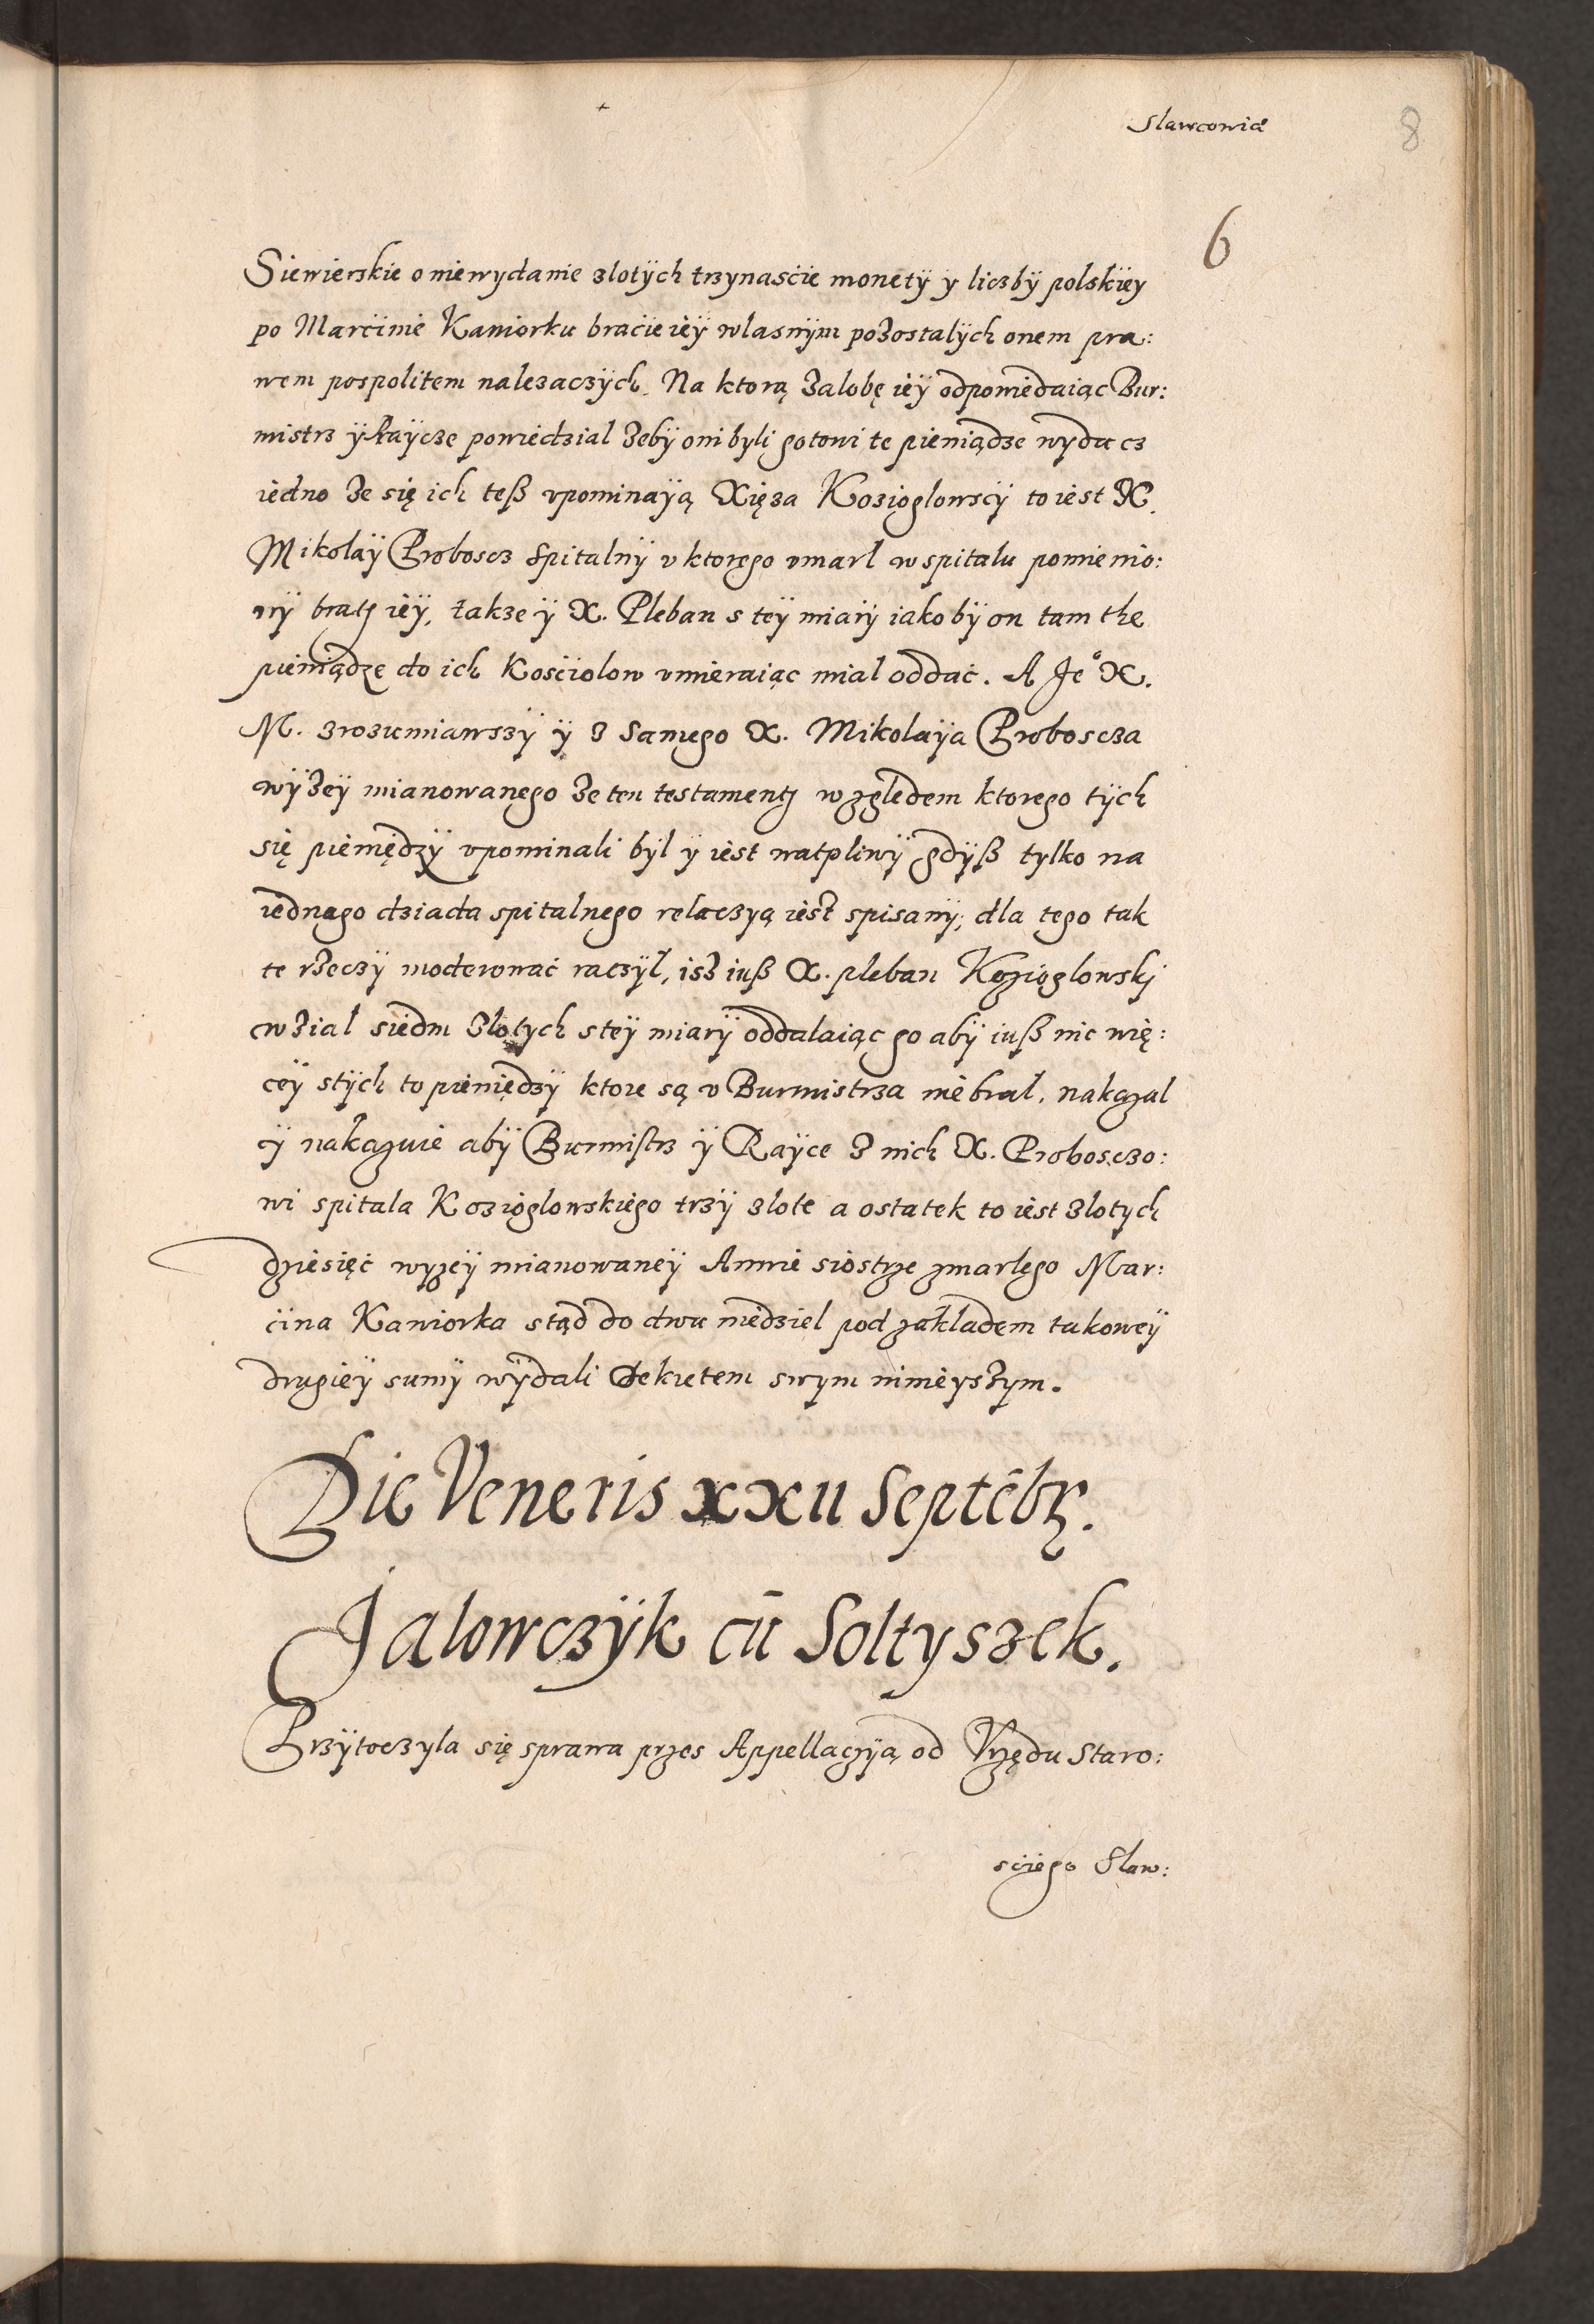 Slawcovia
8
6
Siewierskie o niewydanie zlotÿch trzynascie monetÿ ÿ liczbÿ polskiey
po Marcinie Kawiorku bracie ieÿ wlasnÿm pozostalÿch onem pra:
wem pospolitem nalezaczÿch. Na ktorą zalobę ieÿ odpowiedaiąc Bur:
mistrz ÿ Raÿcze powiedzial zebÿ oni byli gotowi te pieniądze wydacz
iedno ze się ich teß vpominaÿą Xięza Kozioglowscÿ to iest X.
Mikolaÿ Proboscz Spitalnÿ v ktorego vmarl w spitalu pomienio:
nÿ bratj ieÿ, takze ÿ X. Pleban s teÿ miarÿ iako bÿ on tam the
pieniądze do ich Kosciolow vmieraiąc mial oddać. A Je° X.
M. zrozumiawszÿ ÿ z samego X. Mikolaÿa Proboscza
wÿzeÿ mianowanego ze ten testamentj wzgledem ktorego tÿch
się pieniędzÿ vpominali bÿl ÿ iest watpliwÿ gdÿß tylko na
iednego dziada spitalnego relaczyą iest spisanÿ, dla tego tak
te rzeczÿ moderować raczÿl, isz iuß X. pleban Kozioglowskj
wzial siedm zlotych s teÿ miarÿ oddalaiąc go abÿ iuß nic wię:
ceÿ s tÿch to pieniędzÿ ktore są v Burmistrza nie bral, nakazal
ÿ nakazuie abÿ Burmistrz ÿ Raÿce z nich X. Probosczo:
wi spitala Kozioglowskiego trzÿ zlote a ostatek to iest zlotych
dziesięć wyzeÿ mianowaneÿ Annie siostrze zmarlego Mar:
cina Kawiorka stąd do dwu niedziel pod zakladem takoweÿ
drugieÿ sumÿ wÿdali dekretem swym ninieyszym.
Die Veneris xxii Septēbr.
Jalowczÿk cū Soltyszek.
Przÿtoczyla się sprawa przes Appellaczÿą od Vrzędu Staro:
sciego Slaw: